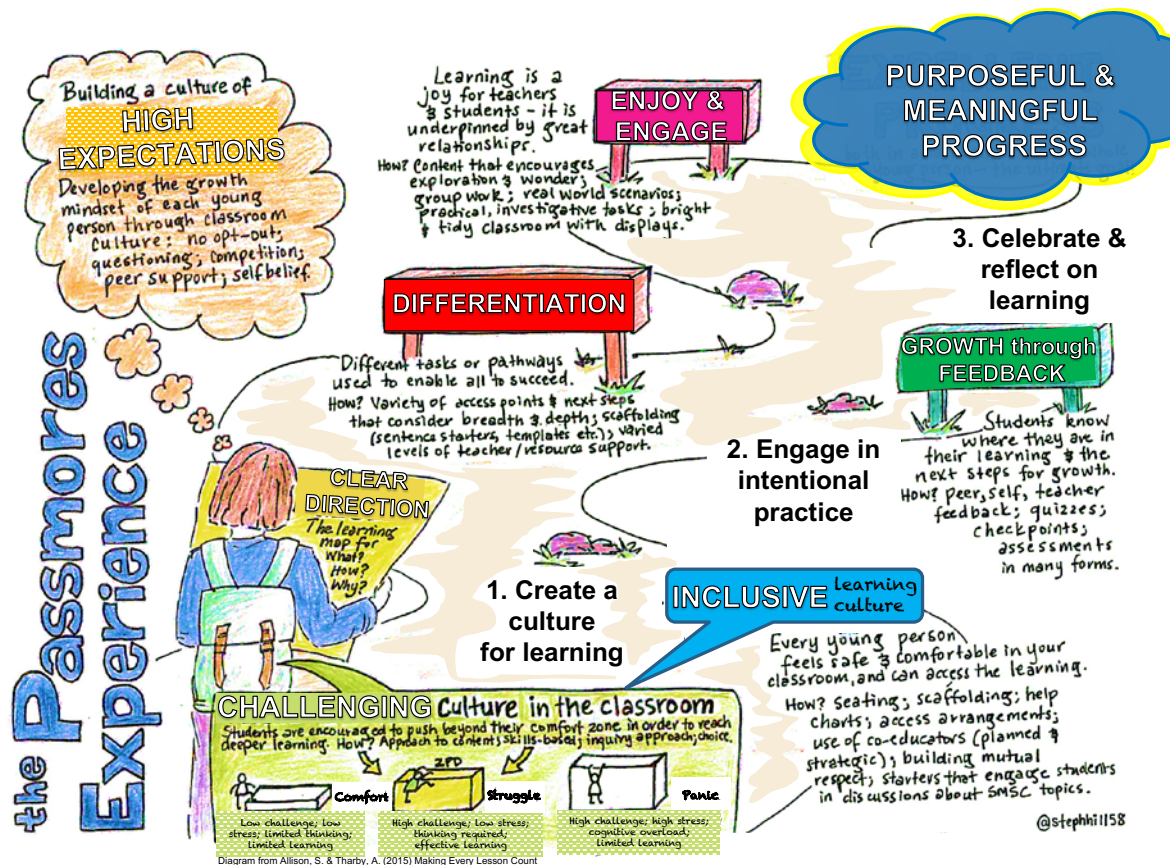 the Passmores
Experience
Building a culture of
HIGH
EXPECTATIONS
Developing the growth
mindset of each young
person through classroom
culture: no opt-out;
questioning; competition;
peer support; self belief
Learning is a
joy for teachers
& students - it is
underpinned by great
relationships.
How? Content that encourages
exploration & wonder;
group work; real world scenarios;
practical, investigative tasks; bright
& tidy classroom with displays.
ENJOY &
ENGAGE
PURPOSEFUL &
MEANINGFUL
PROGRESS
3. Celebrate &
reflect on
learning
DIFFERENTIATION
Different tasks or pathways
used to enable all to succeed.
How? Variety of access points & next steps
that consider breadth & depth; scaffolding
(sentence starters, templates etc.); varied
levels of teacher/resource support.
GROWTH through
FEEDBACK
Students know
where they are in
their learning & the
next steps for growth.
How? peer, self, teacher
feedback; quizzes;
checkpoints;
assessments
in many forms.
2. Engage in
intentional
practice
CLEAR
DIRECTION
The learning
map for
What?
How?
Why?
1. Create a
culture
for learning
INCLUSIVE learning
culture
Every young person
feels safe & comfortable in your
classroom, and can access the learning.
How? Seating; scaffolding; help
charts; access arrangements;
use of co-educators (planned &
strategic); building mutual
respect; starters that engage students
in discussions about SMSC topics.
CHALLENGING Culture in the classroom
Students are encouraged to push beyond their comfort zone in order to reach
deeper learning. How? Approach to content; skills-based; inquiry approach; choice.
ZPD
Comfort
Struggle
Panic
Low challenge; low
stress; limited thinking;
limited learning
High challenge; low stress;
thinking required;
effective learning
High challenge; high stress;
cognitive overload;
limited learning
@stephhill58
Diagram from Allison, S. & Tharby, A. (2015) Making Every Lesson Count